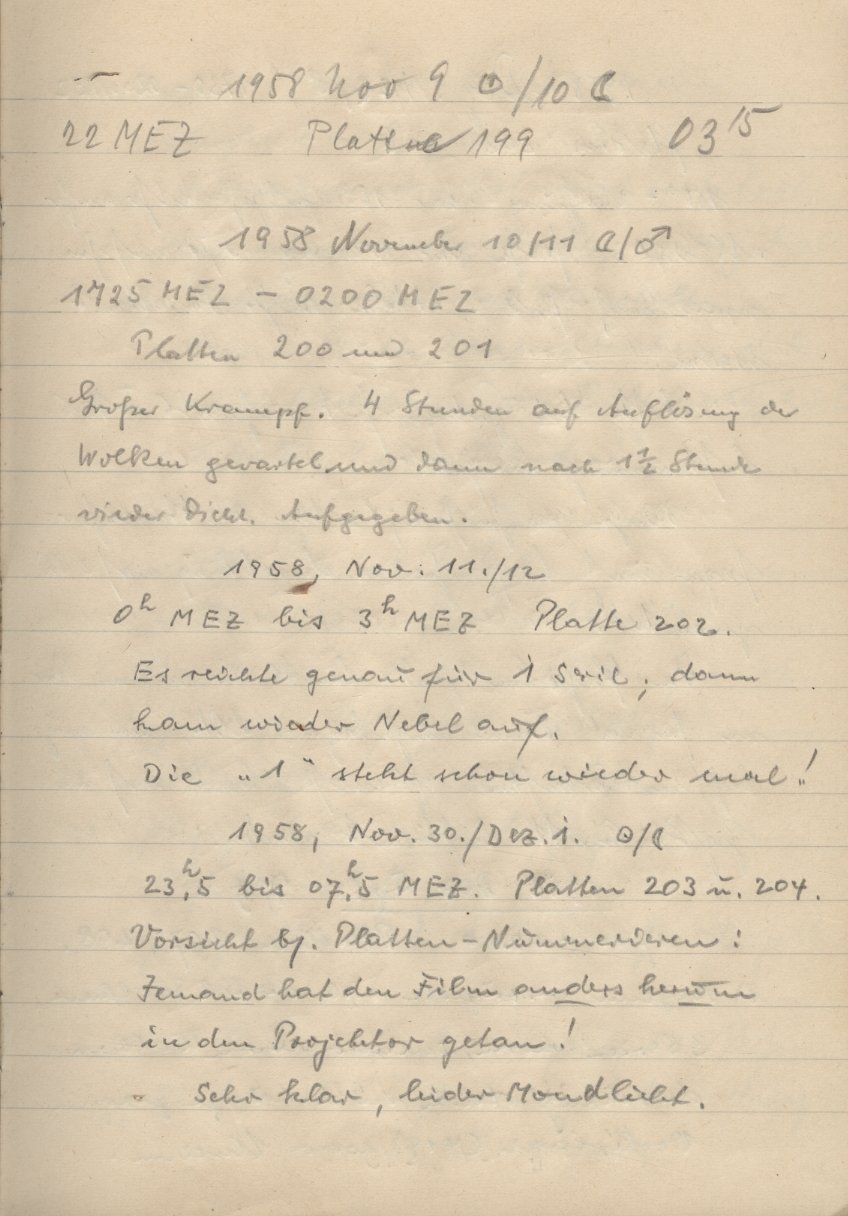 1958 Nov 9 ☉/10 ☾
22 MEZ Platte 199 03¹⁵
1958 November 10/11 ☾/♂
1725 MEZ – 0200 MEZ
Platten 200 und 201
Großer Krampf. 4 Stunden auf Auflösung der
Wolken gewartet und dann nach 1½ Stunde
wieder dicht. Aufgegeben.
1958, Nov. 11./12
0ʰ MEZ bis 3ʰ MEZ Platte 202.
Es reichte genau für 1 Serie, dann
kam wieder Nebel auf.
Die „1“ steht schon wieder mal!
1958, Nov. 30./Dez. 1. ☉/☾
23ʰ,5 bis 07ʰ,5 MEZ. Platten 203 u. 204.
Vorsicht bz. Platten-Nummerieren:
Jemand hat den Film anders herum
in den Projektor getan!
Sehr klar, leider Mondlicht.